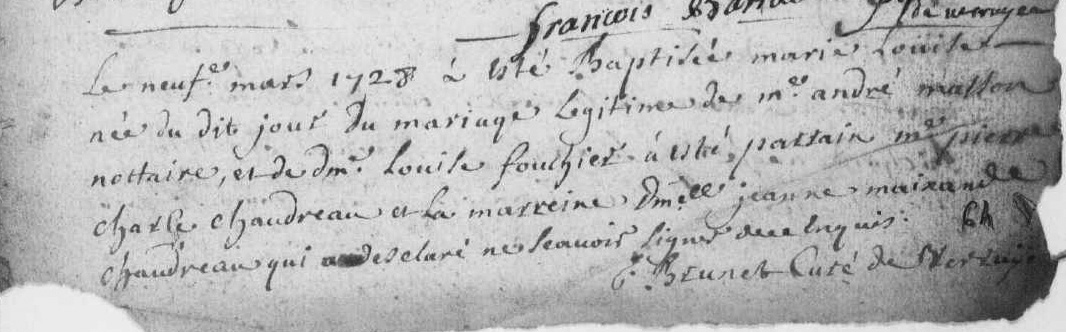 françois
de verruye
Le neuf.e mars 1728 à esté Baptisée marie Louise
née du dit jour du mariage Legitime de m.e andré masson
nottaire, et de dm.e Louise fouchier à esté parrain m.e pierre
charle chaudreau et La marreine dm.elle jeanne
chaudreau qui a desclaré ne scavoir signer de ce enquis.
Brunet Curé de Verruye